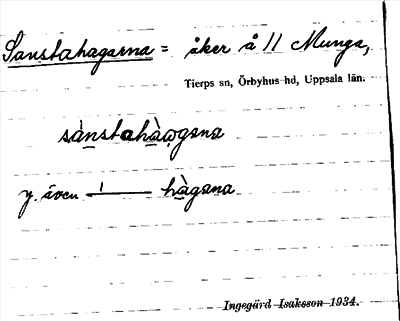 Sanstahagarna = åker å 11 Munga,
Tierps sn, Örbyhus hd, Uppsala län.
sànstahàogana
y. även —'— hàgana
Ingegärd Isaksson 1934.